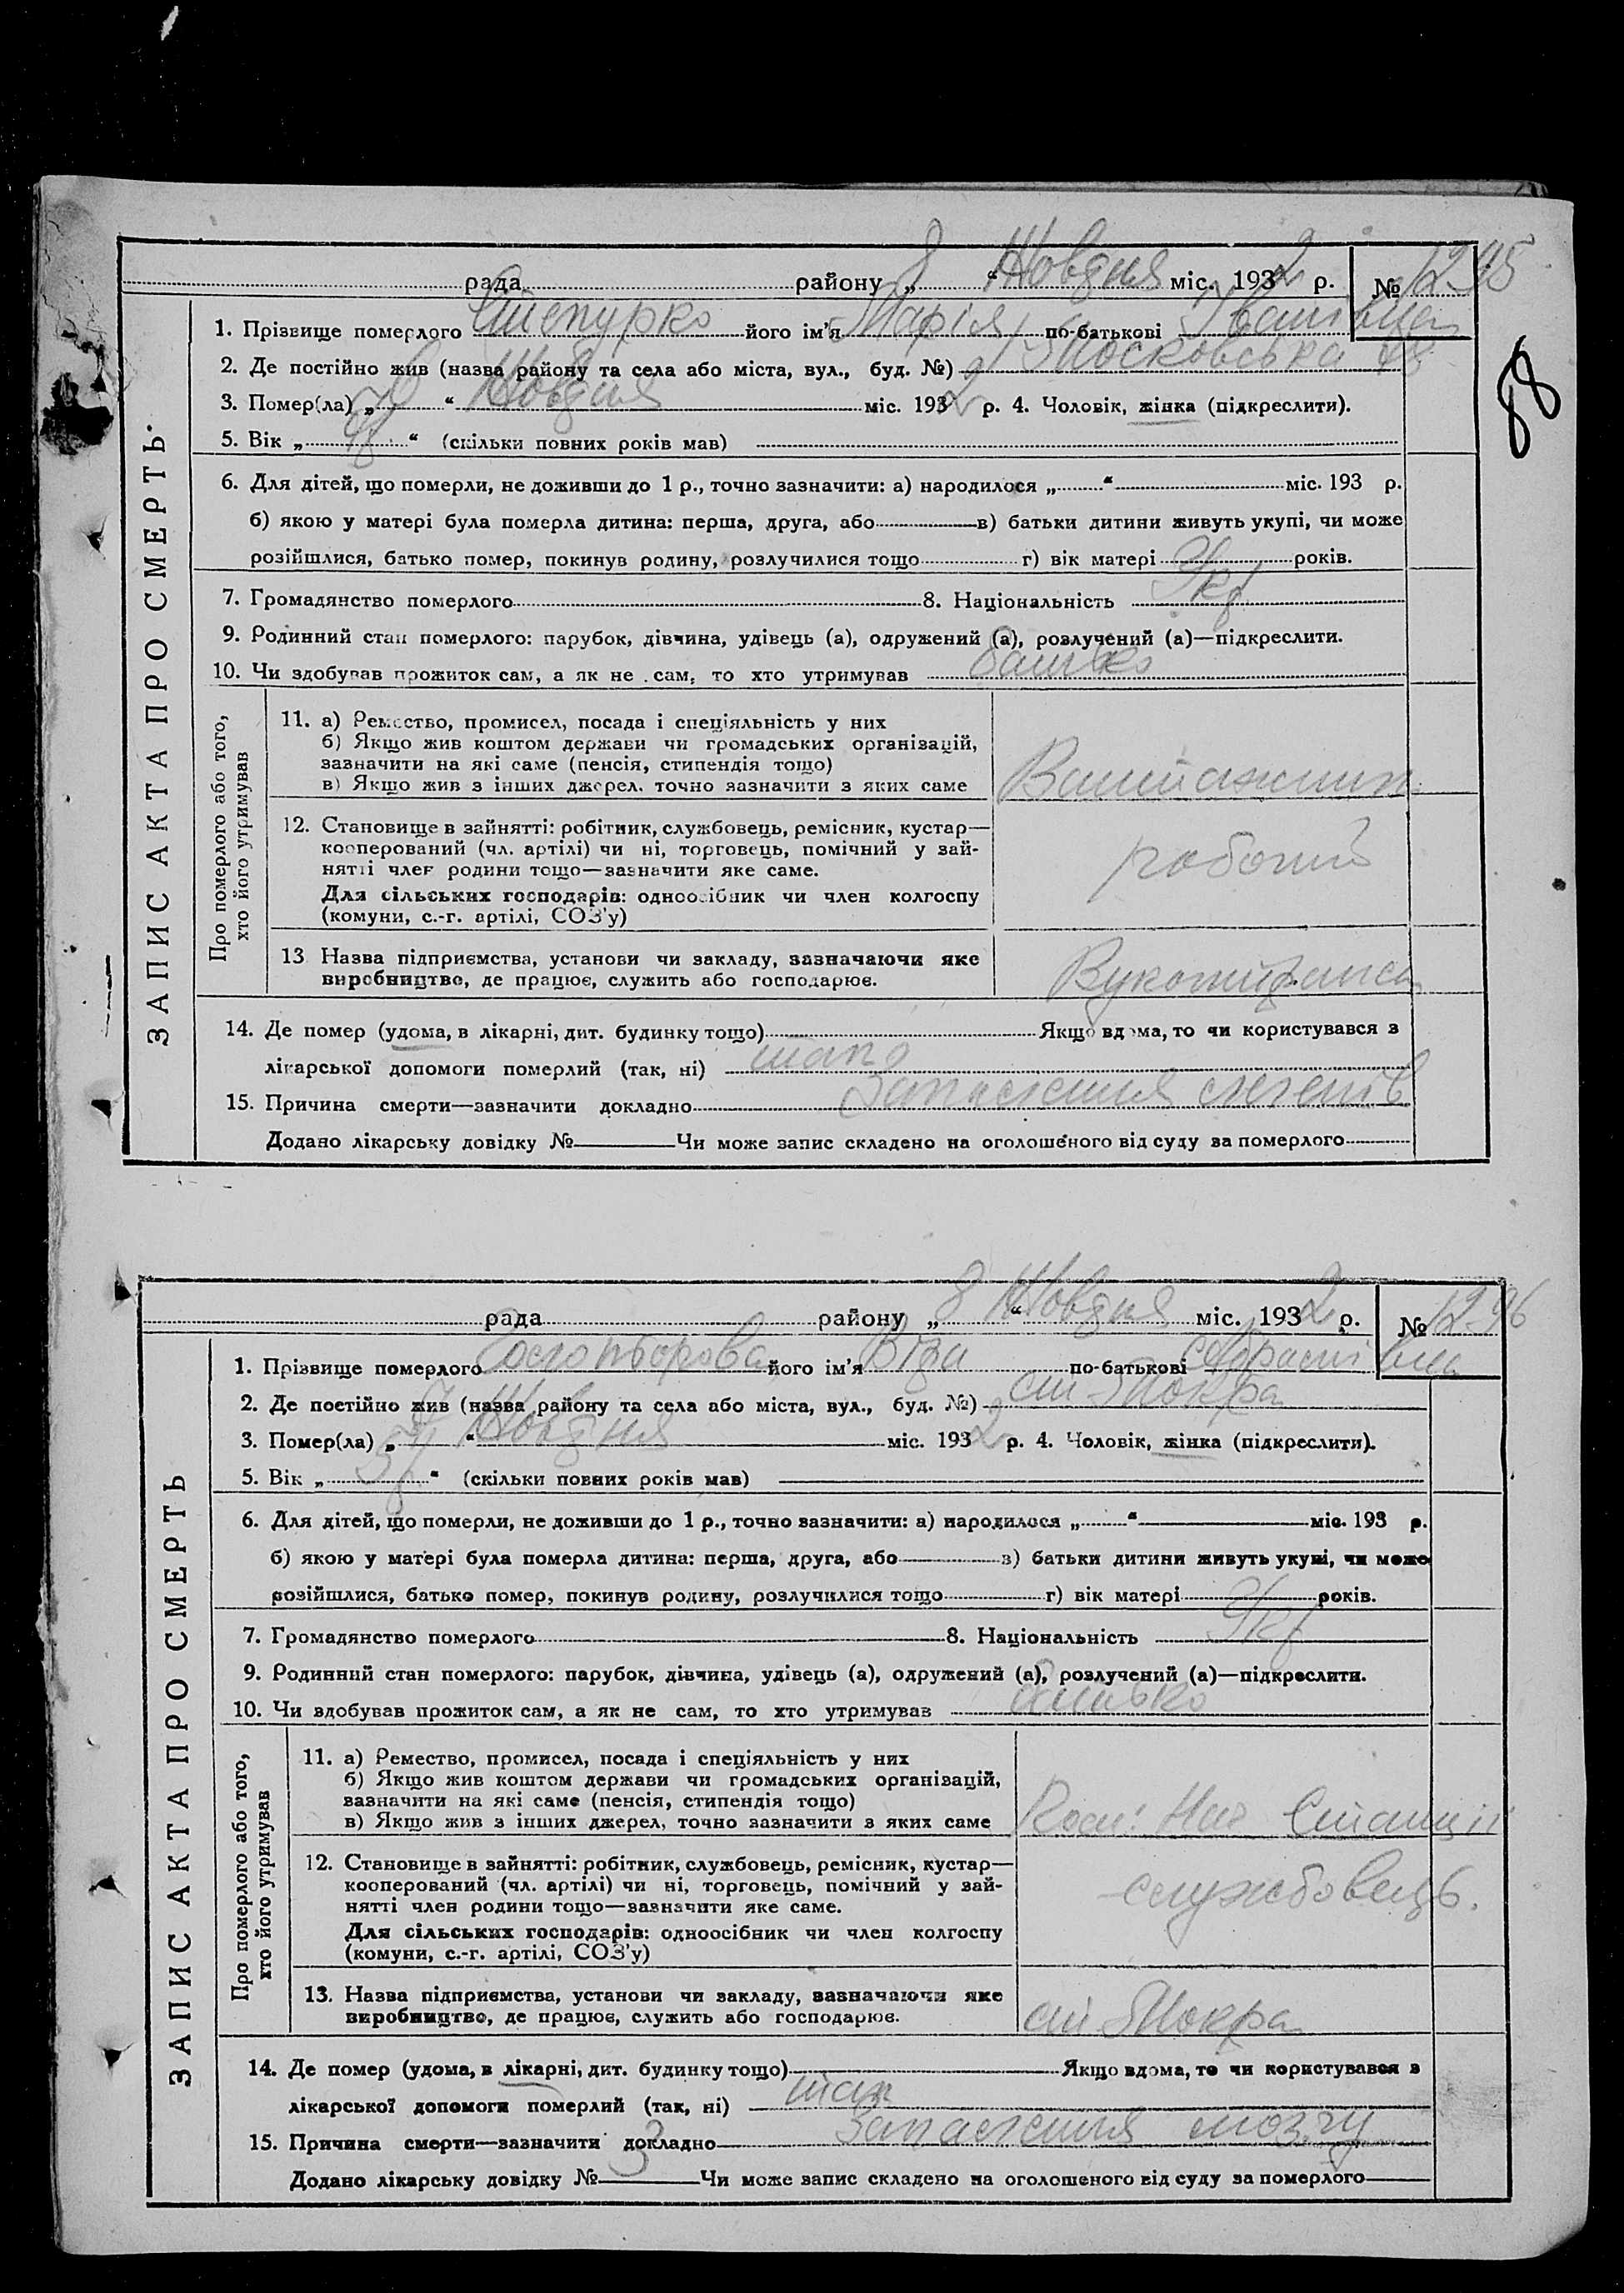 88
ЗАПИС АКТА ПРО СМЕРТЬ
рада району „8“ Жовтня міс. 1932 р. № 1295
1. Прізвище померлого його ім'я Марія по-батькові Іванівна
2. Де постійно жив (назва району та села або міста, вул., буд. №) Московська 48
3. Помер(ла) „ “ Жовтня міс. 1932 р. 4. Чоловік, жінка (підкреслити).
5. Вік „ “ (скільки повних років мав)
6. Для дітей, що померли, не доживши до 1 р., точно зазначити: а) народилося „ “ міс. 193 р.
б) якою у матері була померла дитина: перша, друга, або в) батьки дитини живуть укупі, чи може
розійшлися, батько помер, покинув родину, розлучилися тощо г) вік матері років.
7. Громадянство померлого 8. Національність Укр
9. Родинний стан померлого: парубок, дівчина, удівець (а), одружений (а), розлучений (а)—підкреслити.
10. Чи здобував прожиток сам, а як не сам, то хто утримував батько
Про померлого або того, хто його утримував
11. а) Ремество, промисел, посада і спеціяльність у них
б) Якщо жив коштом держави чи громадських організацій,
зазначити на які саме (пенсія, стипендія тощо)
в) Якщо жив з інших джерел, точно зазначити з яких саме
Вантажник
12. Становище в зайнятті: робітник, службовець, ремісник, кустар—
кооперований (чл. артілі) чи ні, торговець, помічний у зай-
нятті член родини тощо—зазначити яке саме.
Для сільських господарів: одноосібник чи член колгоспу
(комуни, с.-г. артілі, СОЗ'у)
робочий
13. Назва підприємства, установи чи закладу, зазначаючи яке
виробництво, де працює, служить або господарює.
14. Де помер (удома, в лікарні, дит. будинку тощо) Якщо вдома, то чи користувався з
лікарської допомоги померлий (так, ні) так
15. Причина смерти—зазначити докладно Запалення легенів
Додано лікарську довідку № Чи може запис складено на оголошеного від суду за померлого
ЗАПИС АКТА ПРО СМЕРТЬ
рада району „8“ Жовтня міс. 1932 р. № 1296
1. Прізвище померлого його ім'я Віра по-батькові
2. Де постійно жив (назва району та села або міста, вул., буд. №) ст Мокра
3. Помер(ла) „ “ Жовтня міс. 1932 р. 4. Чоловік, жінка (підкреслити).
5. Вік „ “ (скільки повних років мав)
6. Для дітей, що померли, не доживши до 1 р., точно зазначити: а) народилося „ “ міс. 193 р.
б) якою у матері була померла дитина: перша, друга, або в) батьки дитини живуть укупі, чи може
розійшлися, батько помер, покинув родину, розлучилися тощо г) вік матері років.
7. Громадянство померлого 8. Національність Укр
9. Родинний стан померлого: парубок, дівчина, удівець (а), одружений (а), розлучений (а)—підкреслити.
10. Чи здобував прожиток сам, а як не сам, то хто утримував батько
Про померлого або того, хто його утримував
11. а) Ремество, промисел, посада і спеціяльність у них
б) Якщо жив коштом держави чи громадських організацій,
зазначити на які саме (пенсія, стипендія тощо)
в) Якщо жив з інших джерел, точно зазначити з яких саме
Нач Станції
12. Становище в зайнятті: робітник, службовець, ремісник, кустар—
кооперований (чл. артілі) чи ні, торговець, помічний у зай-
нятті член родини тощо—зазначити яке саме.
Для сільських господарів: одноосібник чи член колгоспу
(комуни, с.-г. артілі, СОЗ'у)
службовець.
13. Назва підприємства, установи чи закладу, зазначаючи яке
виробництво, де працює, служить або господарює.
ст Мокра
14. Де помер (удома, в лікарні, дит. будинку тощо) Якщо вдома, то чи користувався з
лікарської допомоги померлий (так, ні) так
15. Причина смерти—зазначити докладно Запалення мозгу
Додано лікарську довідку № 3 Чи може запис складено на оголошеного від суду за померлого